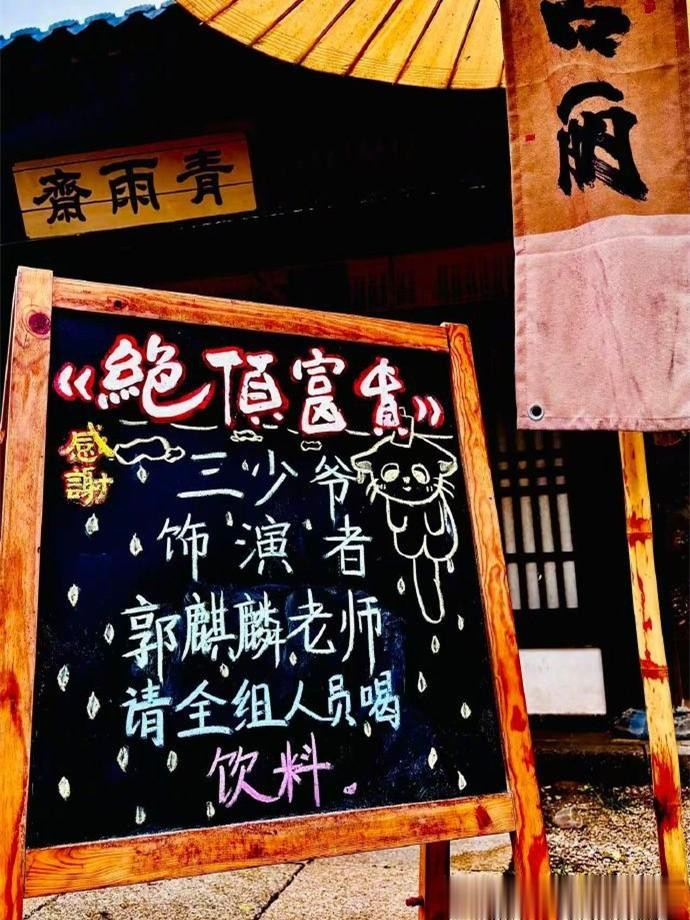 青雨齋
丽
《絶頂富貴》
感謝
三少爷
饰演者
郭麒麟老师
请全组人员喝
饮料.